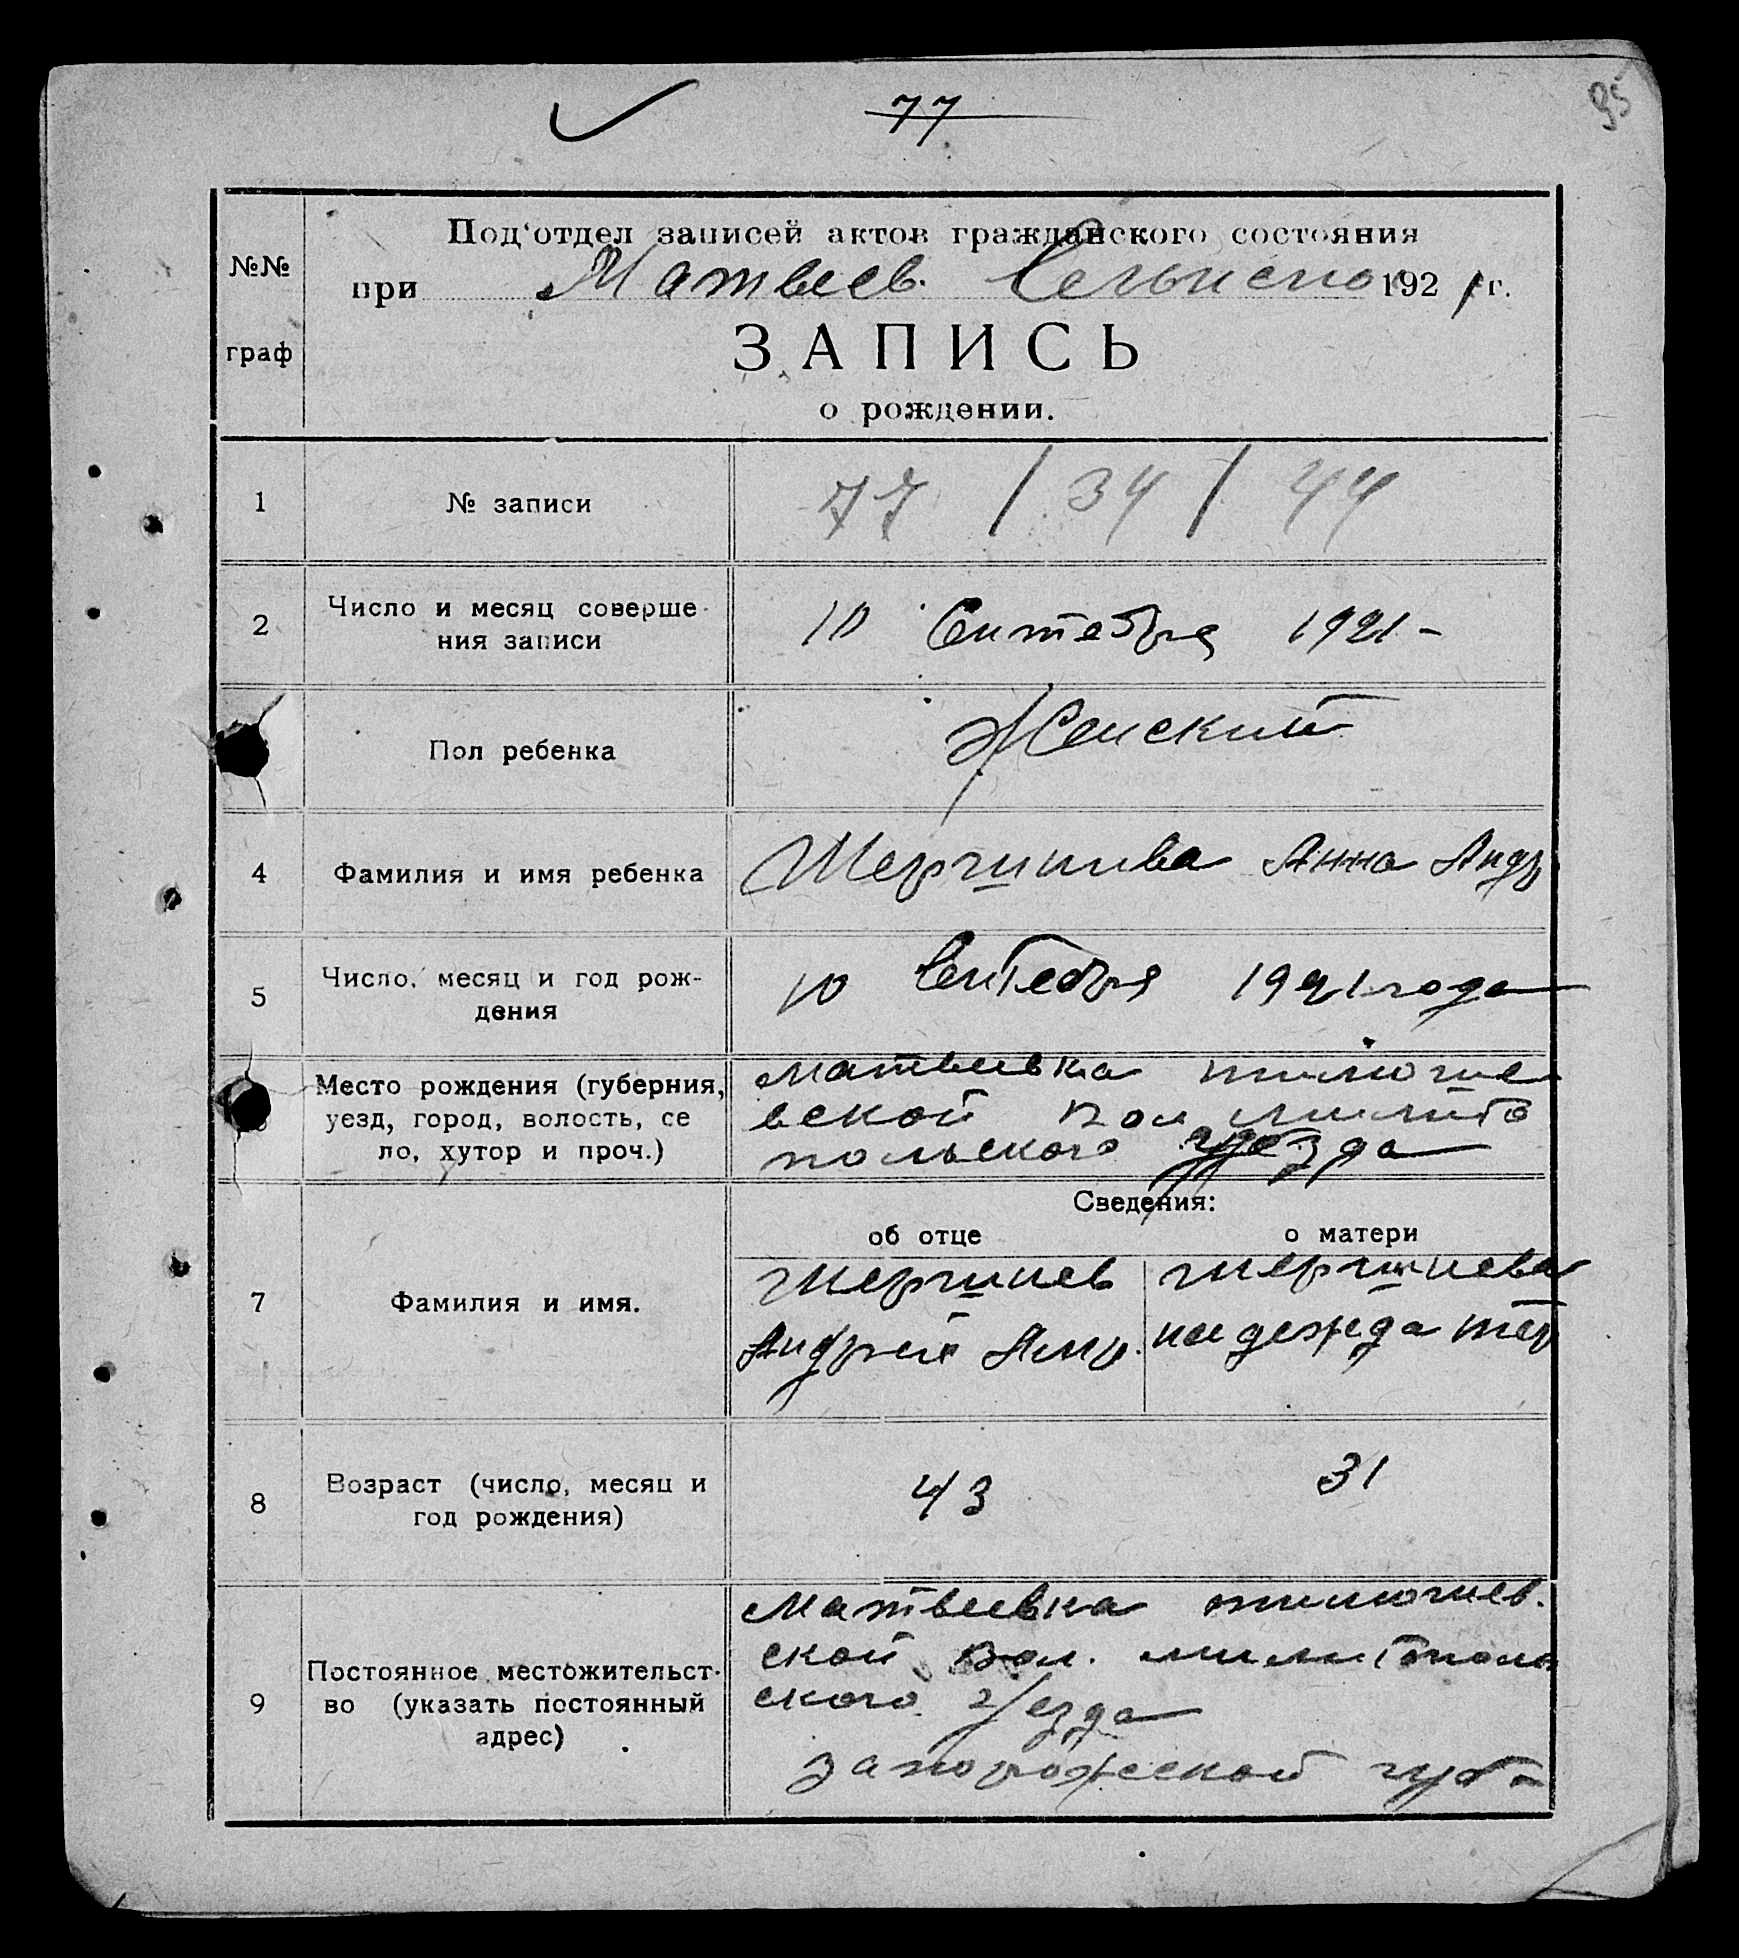 77
95
Под'отдел записей актов гражданского состояния
№№
граф
при Матвеев. Сельиспо 1921 г.
ЗАПИСЬ
о рождении.
1 № записи 77 / 34 / 44
2 Число и месяц соверше- 10 Сентебря 1921 -
ния записи
Пол ребенка Женский
4 Фамилия и имя ребенка Анна Андр
5 Число, месяц и год рож- 10 Сентебря 1921 года
дения
Место рождения (губерния, Матвеевка
уезд, город, волость, се вской вол мелито
ло, хутор и проч.) польского уезда
Сведения:
об отце о матери
7 Фамилия и имя.
Андрей надежда
8 Возраст (число, месяц и 43 31
год рождения)
Матвеевка
9 Постоянное местожительст- ской вол.
во (указать постоянный ского уезда
адрес) запорожской губ